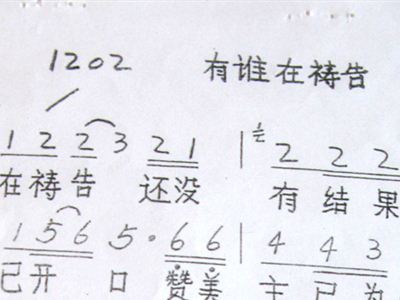 1202 有谁在祷告
1 2 2 3 2 1 | 2 2 2
在祷告 还没 有结果
1 5 6 5 · 6 6 4 4 3
已开口赞美 主已为